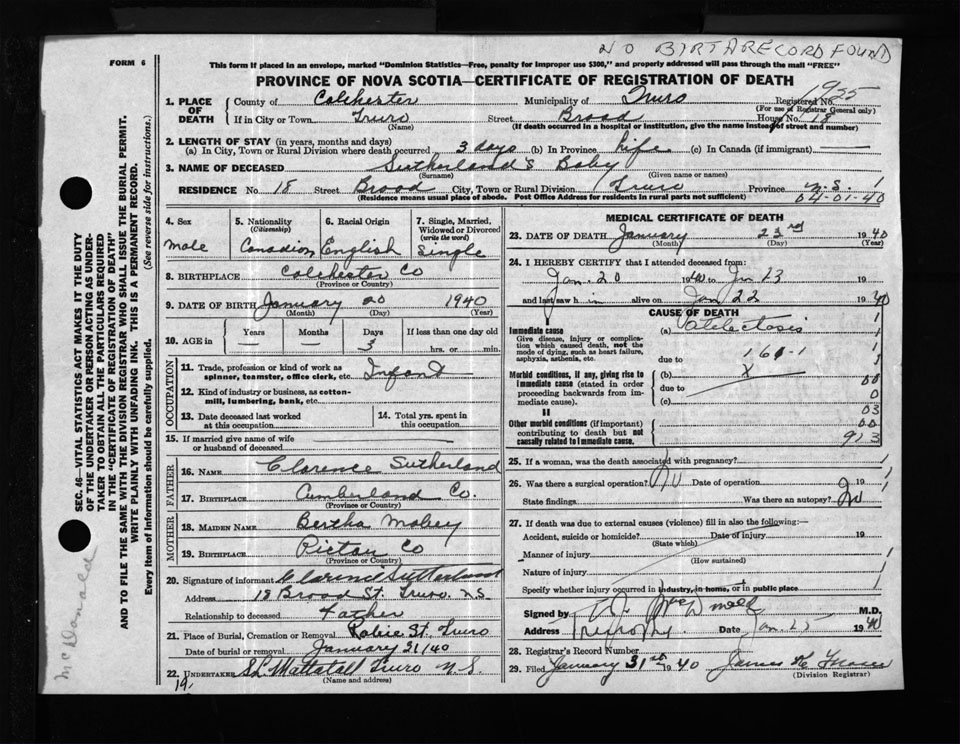 NO BIRTH RECORD FOUND
FORM 6
This form if placed in an envelope, marked "Dominion Statistics—Free, penalty for improper use $300," and properly addressed will pass through the mail "FREE"
PROVINCE OF NOVA SCOTIA—CERTIFICATE OF REGISTRATION OF DEATH
1. PLACE OF DEATH County of Colchester Municipality of Truro Registered No. 1955
(For use of Registrar General only)
If in City or Town Truro Street Broad House No. 18
(Name) (If death occurred in a hospital or institution, give the name instead of street and number)
2. LENGTH OF STAY (in years, months and days)
(a) In City, Town or Rural Division where death occurred 3 days (b) In Province life (c) In Canada (if immigrant)
3. NAME OF DECEASED Sutherland's Baby
(Surname) (Given name or names)
RESIDENCE No. 18 Street Broad City, Town or Rural Division Truro Province N.S. 1
(Residence means usual place of abode. Post Office Address for residents in rural parts not sufficient) 04-01-40
4. Sex 5. Nationality 6. Racial Origin 7. Single, Married, Widowed or Divorced
(Citizenship) (write the word)
Male Canadian English Single
8. BIRTHPLACE Colchester Co
(Province or Country)
9. DATE OF BIRTH January 20 1940
(Month) (Day) (Year)
10. AGE in Years Months Days If less than one day old
— — 3 hrs. or min.
OCCUPATION
11. Trade, profession or kind of work as spinner, teamster, office clerk, etc. Infant
12. Kind of industry or business, as cotton-mill, lumbering, bank, etc.
13. Date deceased last worked at this occupation 14. Total yrs. spent in this occupation
15. If married give name of wife or husband of deceased
FATHER
16. NAME Clarence Sutherland
17. BIRTHPLACE Cumberland Co.
(Province or Country)
MOTHER
18. MAIDEN NAME Bertha
19. BIRTHPLACE Pictou Co
(Province or Country)
20. Signature of informant Clarence Sutherland
Address 18 Broad St. Truro. N.S.
Relationship to deceased Father
21. Place of Burial, Cremation or Removal Robie St. Truro
Date of burial or removal January 31/40
22. UNDERTAKER Mattatall Truro N.S.
(Name and address)
19.
MEDICAL CERTIFICATE OF DEATH
23. DATE OF DEATH January 23rd 1940
(Month) (Day) (Year)
24. I HEREBY CERTIFY that I attended deceased from:
Jan. 20 1940 to Jan 23 19
and last saw him alive on Jan 22 1940
CAUSE OF DEATH
Immediate cause (a) Atelectasis 1
Give disease, injury or complication which caused death, not the mode of dying, such as heart failure, asphyxia, asthenia, etc.
due to 161-1
Morbid conditions, if any, giving rise to immediate cause (stated in order proceeding backwards from immediate cause). (b) X
due to 00
(c) 0
II 03
Other morbid conditions (if important) contributing to death but not causally related to immediate cause. 00
913
25. If a woman, was the death associated with pregnancy?
26. Was there a surgical operation? No Date of operation 19
State findings Was there an autopsy? No
27. If death was due to external causes (violence) fill in also the following:—
Accident, suicide or homicide? Date of injury 19
(State which)
Manner of injury
(How sustained)
Nature of injury
Specify whether injury occurred in industry, in home, or in public place
Signed by M.D.
Address Date Jan. 25 1940
28. Registrar's Record Number
29. Filed January 31st 1940 James H.
(Division Registrar)
SEC. 46—VITAL STATISTICS ACT MAKES IT THE DUTY
OF THE UNDERTAKER OR PERSON ACTING AS UNDERTAKER TO OBTAIN ALL THE PARTICULARS REQUIRED
IN THE "CERTIFICATE OF REGISTRATION OF DEATH"
AND TO FILE THE SAME WITH THE DIVISION REGISTRAR WHO SHALL ISSUE THE BURIAL PERMIT.
WRITE PLAINLY WITH UNFADING INK. THIS IS A PERMANENT RECORD.
Every item of information should be carefully supplied. (See reverse side for instructions.)
McDonald